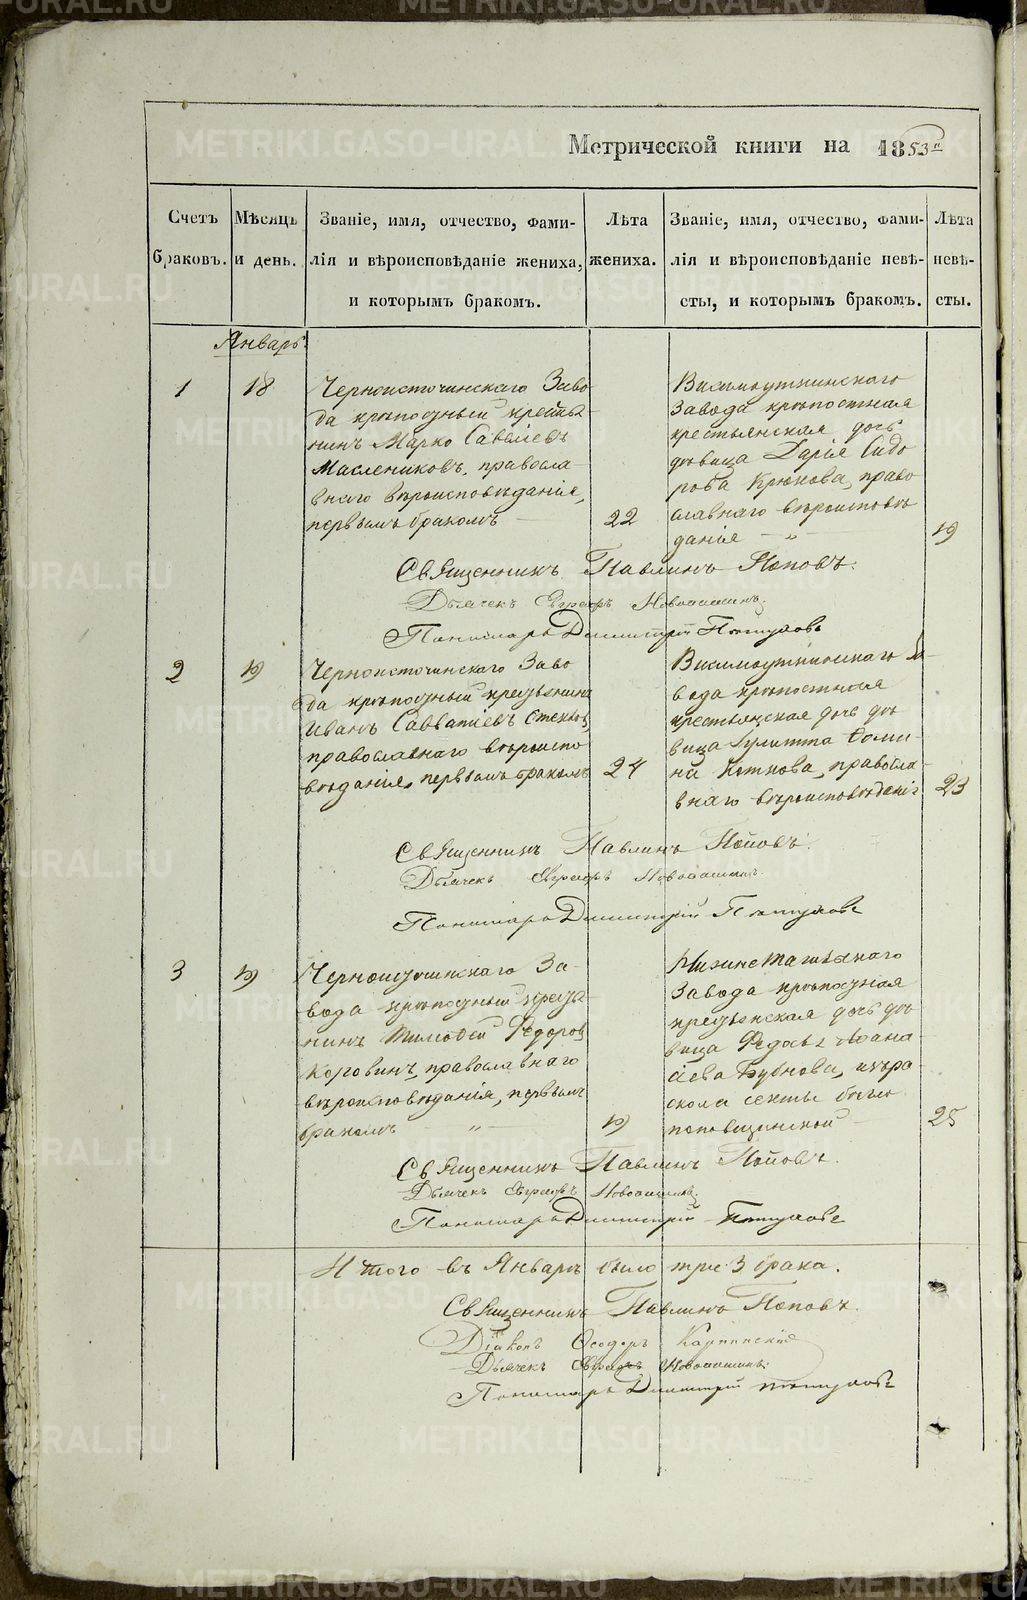 Метрической книги на 1853й
Счетъ браковъ.
Мѣсяцъ и день.
Званіе, имя, отчество, фами-
лія и вѣроисповѣданіе жениха,
и которымъ бракомъ.
Лѣта жениха.
Званіе, имя, отчество, фами-
лія и вѣроисповѣданіе невѣ-
сты, и которымъ бракомъ.
Лѣта невѣ-
сты.
Январь
1
18
Черноисточинскаго Заво
да крѣпостный крестья-
нинъ Марко Савеліевъ
Маслениковъ, правосла-
внаго вѣроисповѣданія,
первымъ бракомъ
22
Висимоуткинскаго
Завода крѣпостная
крестьянская дочь
дѣвица Дарія Сидо
рова Крюкова, право
славнаго вѣроисповѣ
данія
19
Священникъ Павлинъ Поповъ.
Дьячекъ Евграфъ
Пономарь Димитрій
2
19
Черноисточинскаго Заво
да крѣпостный крестьянинъ
Иванъ Савватіевъ
православнаго вѣроиспо
вѣданія, первымъ бракомъ
24
Висимоуткинскаго За-
вода крѣпостная
крестьянская дочь дѣ
вица Улитта Фоми-
на правосла-
внаго вѣроисповѣданія
23
Священникъ Павлинъ Поповъ.
Дьячекъ Евграфъ
Пономарь Димитрій
3
19
Черноисточинскаго За-
вода крѣпостный крестья-
нинъ Тимофей Федоровъ
православнаго
вѣроисповѣданія, первымъ
бракомъ — „ —
19
Нижнетагильскаго
Завода крѣпостная
крестьянская дочь дѣ
вица Федосья Афана
сіева Бубнова, изъ ра
скола секты бѣгло
поповщинской
25
Священникъ Павлинъ Поповъ.
Дьячекъ Евграфъ
Пономарь Димитрій
Итого въ Январѣ было три 3 брака.
Священникъ Павлинъ Поповъ.
Діаконъ Ѳеодоръ Карпинскій
Дьячекъ Евграфъ
Пономарь Димитрій
METRIKI.GASO-URAL.RU